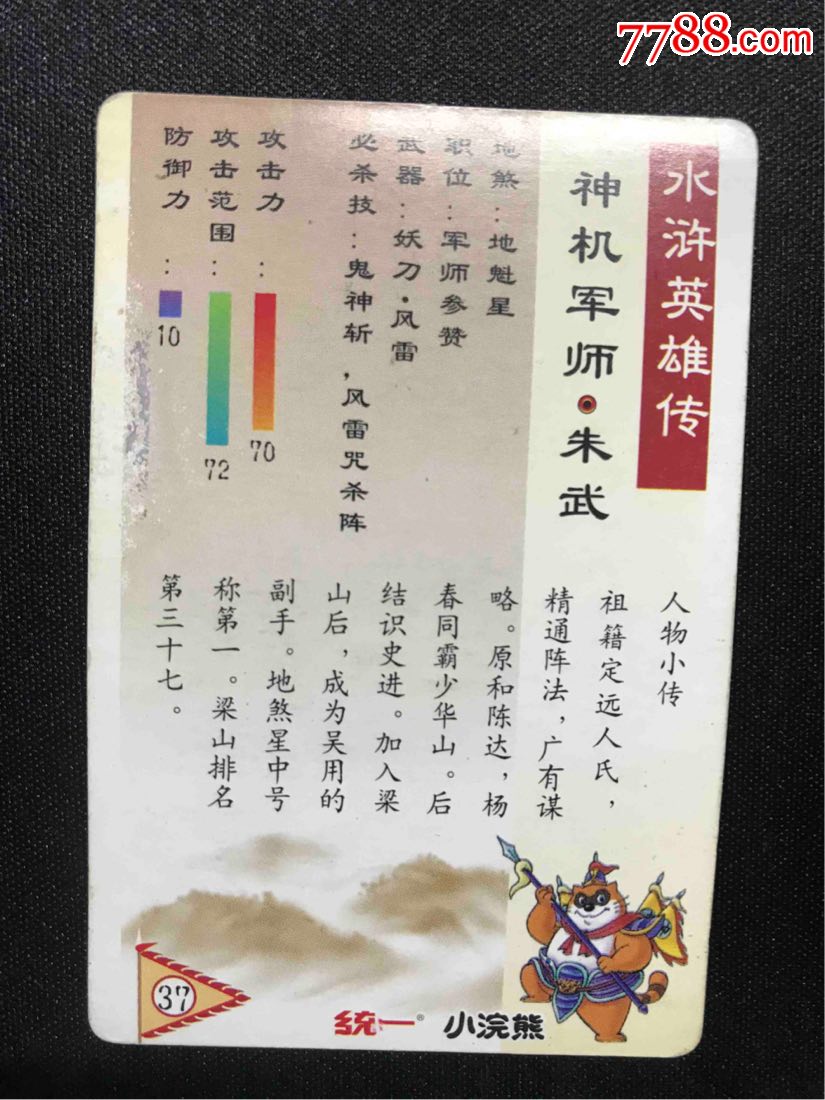 7788.com
水浒英雄传
神机军师·朱武
地煞：地魁星
职位：军师参赞
武器：妖刀·风雷
必杀技：鬼神斩，风雷咒杀阵
攻击力：
70
攻击范围：
72
防御力：
10
人物小传
祖籍定远人氏，
精通阵法，广有谋
略。原和陈达，杨
春同霸少华山。后
结识史进。加入梁
山后，成为吴用的
副手。地煞星中号
称第一。梁山排名
第三十七。
37
统一®
小浣熊